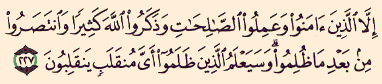 إِلَّا ٱلَّذِينَ ءَامَنُوا۟ وَعَمِلُوا۟ ٱلصَّـٰلِحَـٰتِ وَذَكَرُوا۟ ٱللَّهَ كَثِيرًا وَٱنتَصَرُوا۟
مِنۢ بَعْدِ مَا ظُلِمُوا۟ ۗ وَسَيَعْلَمُ ٱلَّذِينَ ظَلَمُوٓا۟ أَىَّ مُنقَلَبٍ يَنقَلِبُونَ ٢٢٧